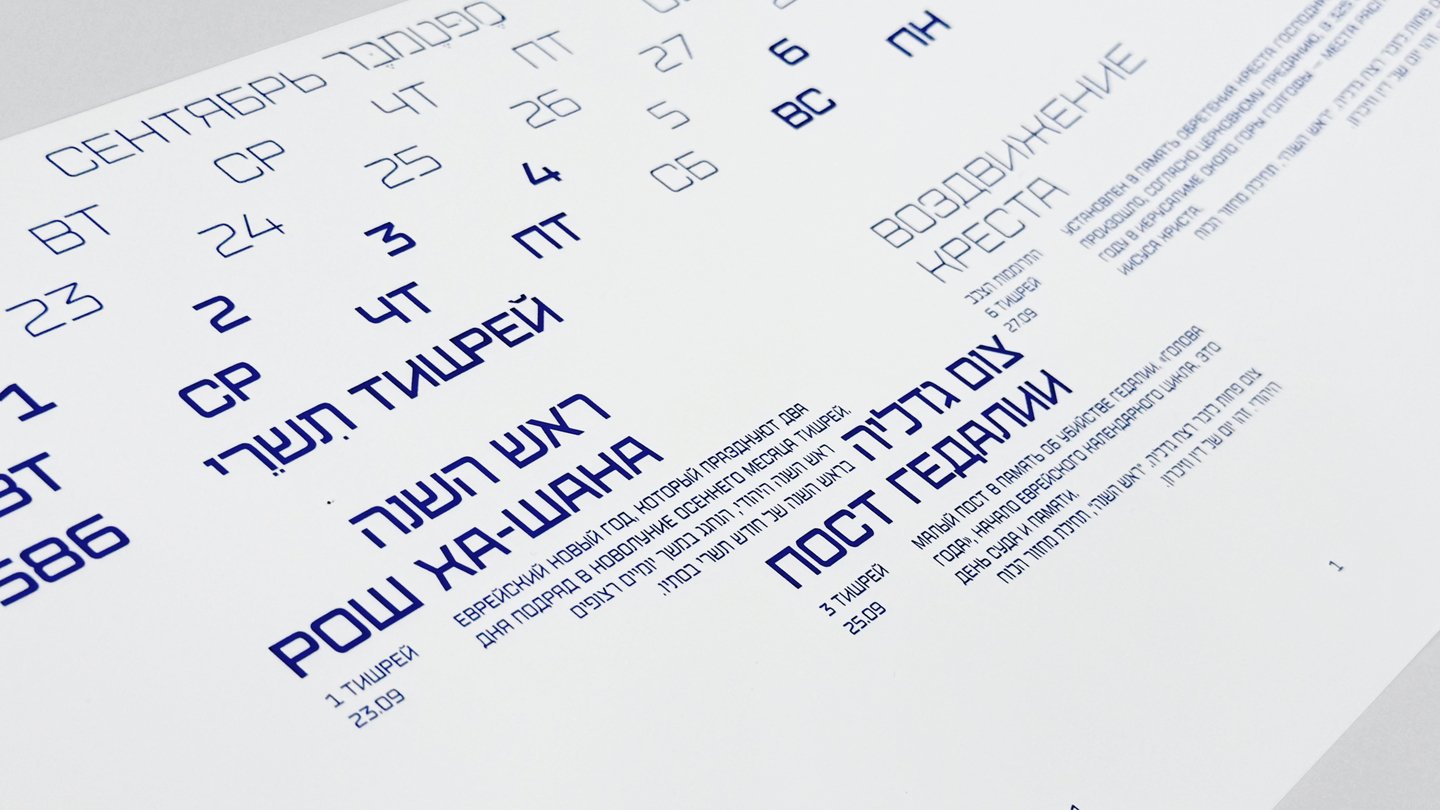 СЕНТЯБРЬ סֶפְּטֶמְבֶּר
ВТ СР ЧТ ПТ
23 24 25 26 27
1 2 3 4 5 6
ВТ СР ЧТ ПТ СБ ВС ПН
5586
תִּשְׁרֵי ТИШРЕЙ
ראש השנה
РОШ ХА-ШАНА
1 ТИШРЕЙ
23.09
ЕВРЕЙСКИЙ НОВЫЙ ГОД, КОТОРЫЙ ПРАЗДНУЮТ ДВА
ДНЯ ПОДРЯД В НОВОЛУНИЕ ОСЕННЕГО МЕСЯЦА ТИШРЕЙ.
ראש השנה היהודי, הנחגג במשך יומיים רצופים
בראש השנה של חודש תשרי בסתיו.
צום גדליה
ПОСТ ГЕДАЛИИ
3 ТИШРЕЙ
25.09
МАЛЫЙ ПОСТ В ПАМЯТЬ ОБ УБИЙСТВЕ ГЕДАЛИИ. «ГОЛОВА
ГОДА», НАЧАЛО ЕВРЕЙСКОГО КАЛЕНДАРНОГО ЦИКЛА. ЭТО
ДЕНЬ СУДА И ПАМЯТИ.
צום פחות בזכר רצח גדליה. "ראש השנה", תחילת מחזור הלוח
היהודי. זהו יום של דין וזיכרון.
ВОЗДВИЖЕНИЕ
КРЕСТА
התרוממות הצלב
6 ТИШРЕЙ
27.09
УСТАНОВЛЕН В ПАМЯТЬ ОБРЕТЕНИЯ КРЕСТА ГОСПОДН
ПРОИЗОШЛО, СОГЛАСНО ЦЕРКОВНОМУ ПРЕДАНИЮ, В 325
ГОДУ В ИЕРУСАЛИМЕ ОКОЛО ГОРЫ ГОЛГОФЫ — МЕСТА РАСП
ИИСУСА ХРИСТА.
1